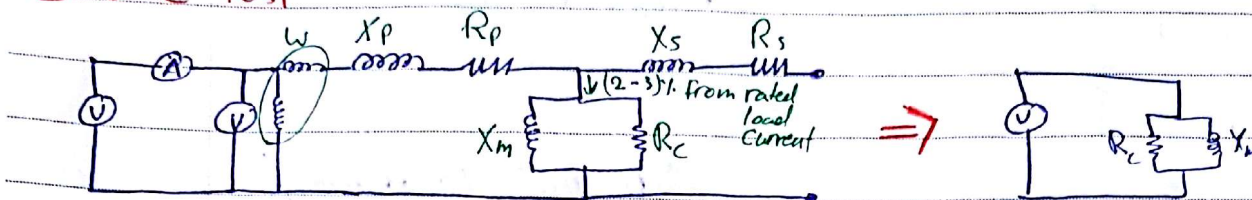 W Xp Rp Xs Rs
A
↓(2-3)% from rated
load
current
V V Xm Rc ⇒ V Rc